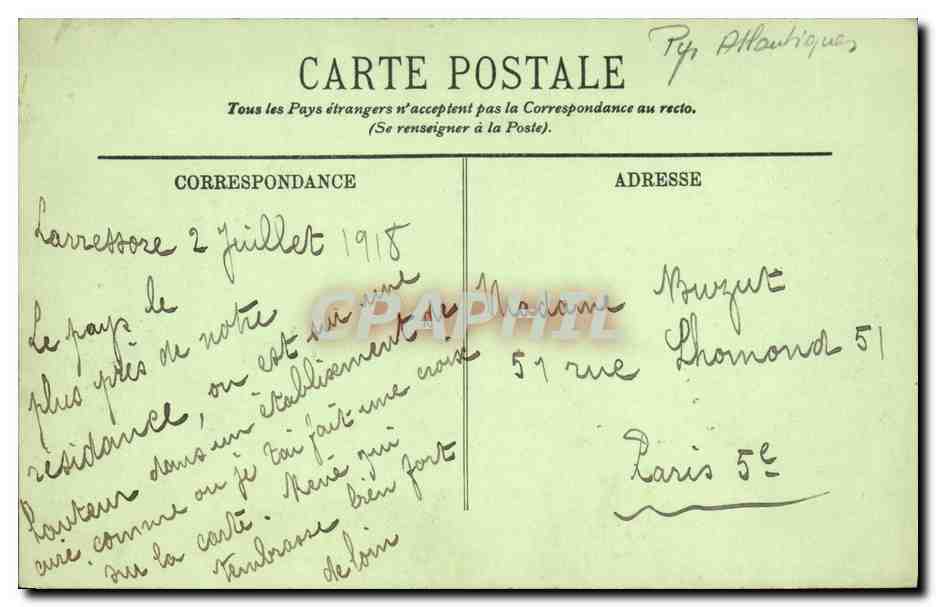 Pys Atlantiques
CARTE POSTALE
Tous les Pays étrangers n'acceptent pas la Correspondance au recto.
(Se renseigner à la Poste).
CORRESPONDANCE
Larressore 2 Juillet 1918
Le pays le
plus près de notre
résidance, on est sur une
hauteur dans un établissement de
cure comme où je t'ai fait une croix
sur la carte. René qui
t'embrasse bien fort
de loin
ADRESSE
Madame
51 rue Lhomond 51
Paris 5e
CPAPHIL